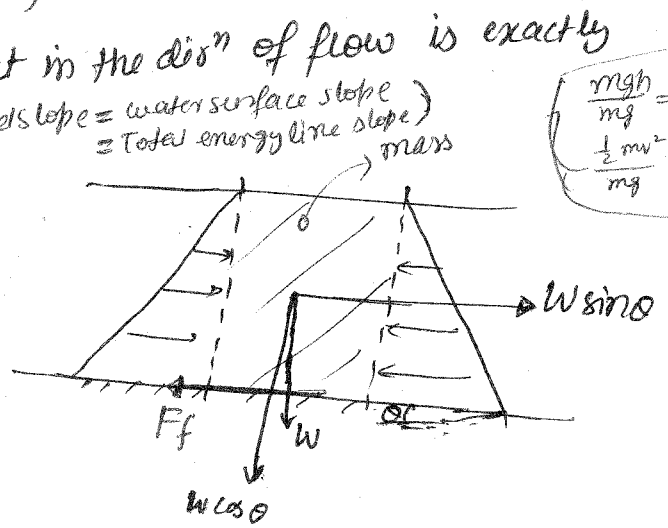 in the dirⁿ of flow is exactly
slope = water surface slope
= Total energy line slope)
mass
mgh
mg
=
½ mv²
mg
W sinθ
Ff
W
θ
W cosθ